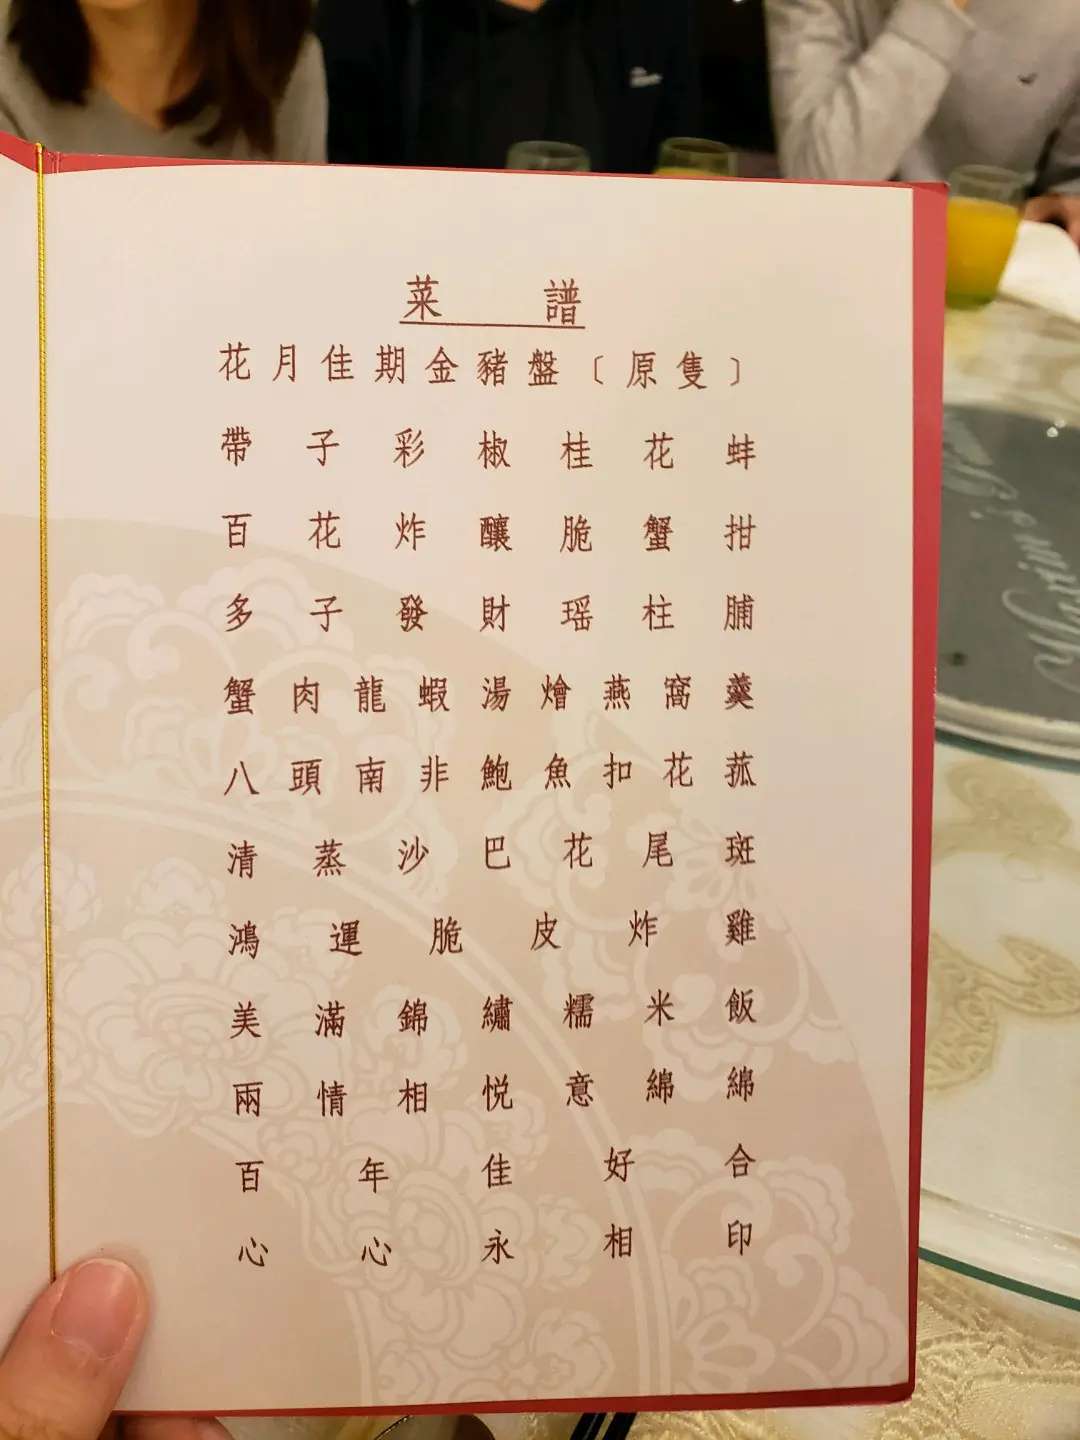 菜譜
花月佳期金豬盤〔原隻〕
帶子彩椒桂花蚌
百花炸釀脆蟹拑
多子發財瑶柱脯
蟹肉龍蝦湯燴燕窩羹
八頭南非鮑魚扣花菰
清蒸沙巴花尾斑
鴻運脆皮炸雞
美滿錦繡糯米飯
兩情相悅意綿綿
百年佳好合
心心永相印